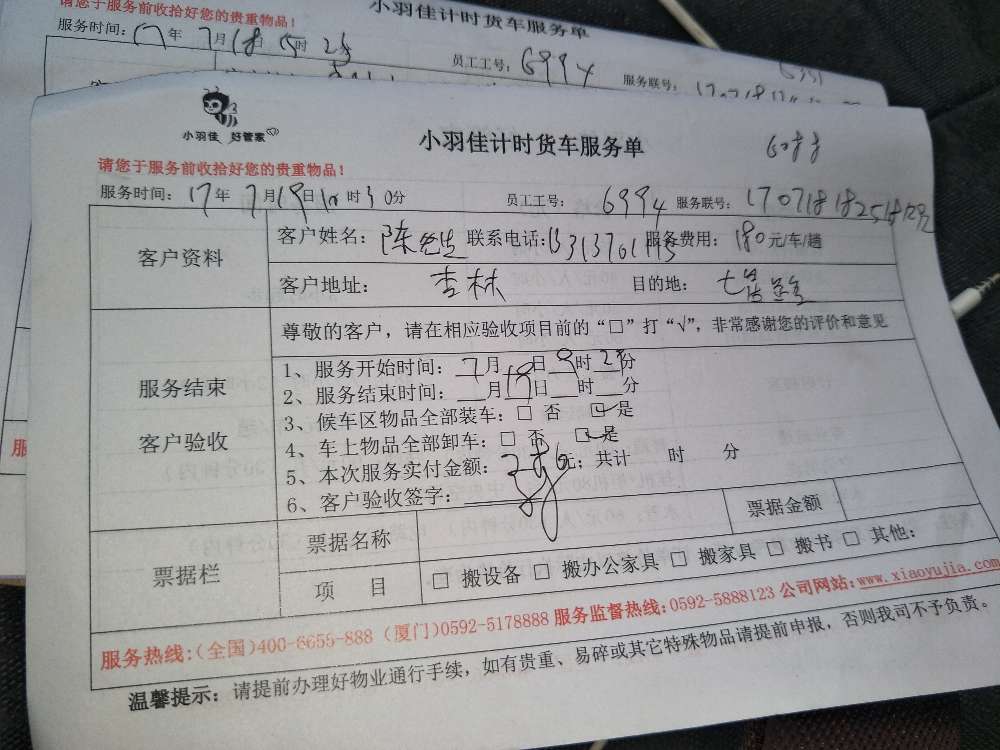 请您于服务前收拾好您的贵重物品！
小羽佳计时货车服务单
服务时间：17年7月18日 时 分 员工工号：6994 服务联号：
小羽佳 好管家
小羽佳计时货车服务单
请您于服务前收拾好您的贵重物品！
服务时间：17年7月19日 时30分 员工工号：6994 服务联号：
客户资料
客户姓名：陈先生 联系电话： 服务费用：180元/车/趟
客户地址：杏林 目的地：
尊敬的客户，请在相应验收项目前的“□”打“√”，非常感谢您的评价和意见
服务结束
客户验收
1、服务开始时间：7月 日9时 分
2、服务结束时间： 月19日 时 分
3、候车区物品全部装车：□ 否 ☑ 是
4、车上物品全部卸车：□ 否 ☑ 是
5、本次服务实付金额： 元；共计 时 分
6、客户验收签字：
票据栏
票据名称 票据金额
项 目 □ 搬设备 □ 搬办公家具 □ 搬家具 □ 搬书 □ 其他：
服务热线：（全国）400-6656-888（厦门）0592-5178888 服务监督热线：0592-5888123 公司网站：www.xiaoyujia.com
温馨提示：请提前办理好物业通行手续，如有贵重、易碎或其它特殊物品请提前申报，否则我司不予负责。